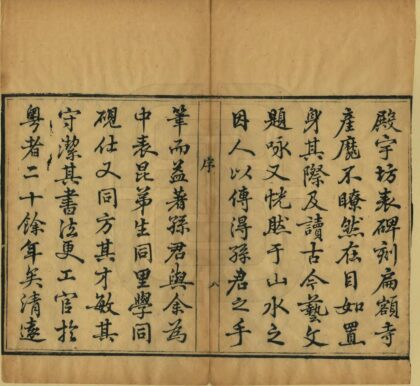 殿宇坊表碑刻扁額寺
産靡不瞭然在目如置
身其際及讀古今藝文
題咏又恍然于山水之
因人以傳得孫君之手
序
八
筆而益著孫君與余為
中表昆弟生同里學同
硯仕又同方其才敏其
守潔其書法更工官於
粤者二十餘年矣清遠